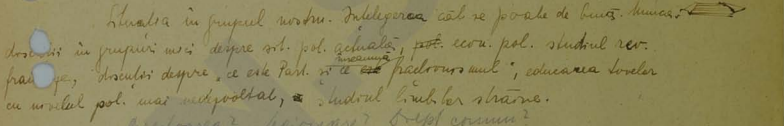 Situația în grupul nostru. Înțelegerea cât se poate de bună. Munca:
discuții în grupuri mici despre sit. pol. actuală, pol. econ. pol. studiul rev.
franceze, discuții despre „ce este Part. și ce înseamnă fracționismul", educarea tovilor
cu nivelul pol. mai nedezvoltat, studiul limbilor străine.
Drept comun?